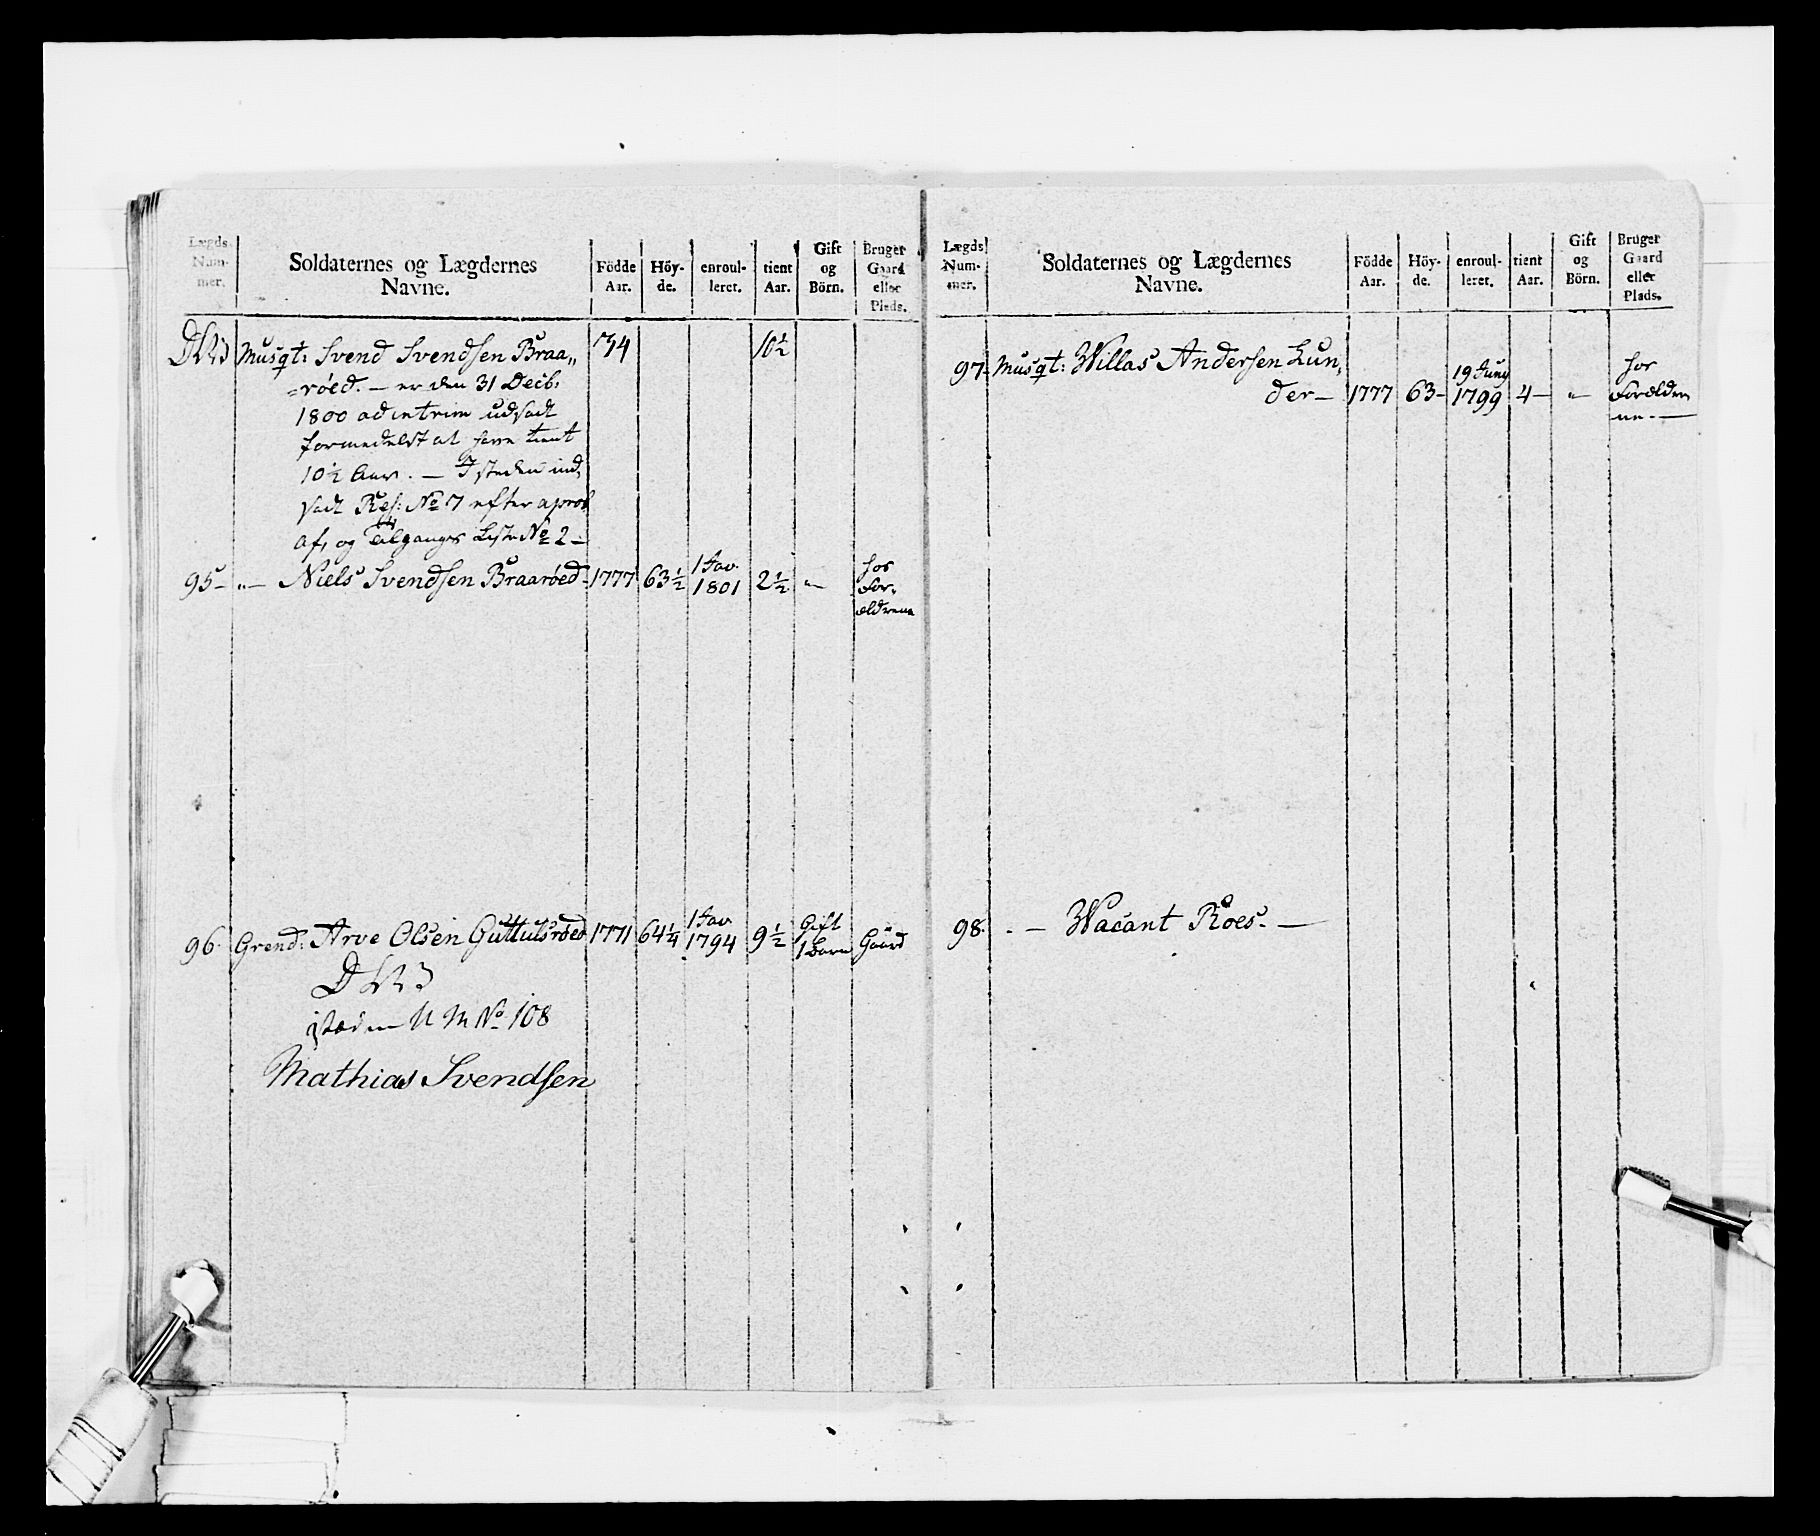 Lægds Num- mer.
Soldaternes og Lægdernes Navne.
Födde Aar.
Höy- de.
enroul- leret.
tient Aar.
Gift og Börn.
Bruger Gaard eller Plads.
Musqt: Svend Svendsen Braa„ 74 10½
=röed. — er den 31 Decb:
1800 ad intrim udsadt
formedelst at have tient
10½ Aar. — I steden ind,
sadt Res: No 7 efter aprob
af, og Tilgangs Liste No 2 —
95 — „— Niels Svendsen Braaröed — 1777 63½ 1 Jav. 1801 2½ „— hos For- ældrene
96. Grend: Arve Olsen Guttulsröed 1771 64¼ 1 Jav 1794 9½ Gift 1 Barn Gaard
isteden U M No 108
Mathias Svendsen
Lægds Num- mer.
Soldaternes og Lægdernes Navne.
Födde Aar.
Höy- de.
enroul- leret.
tient Aar.
Gift og Börn.
Bruger Gaard eller Plads.
97. Musqt: Willas Andersen Lun„
der — 1777 63 — 19 Juny 1799 4 — „— hos Forælder ne. —
98. . — Wacant Roes. —